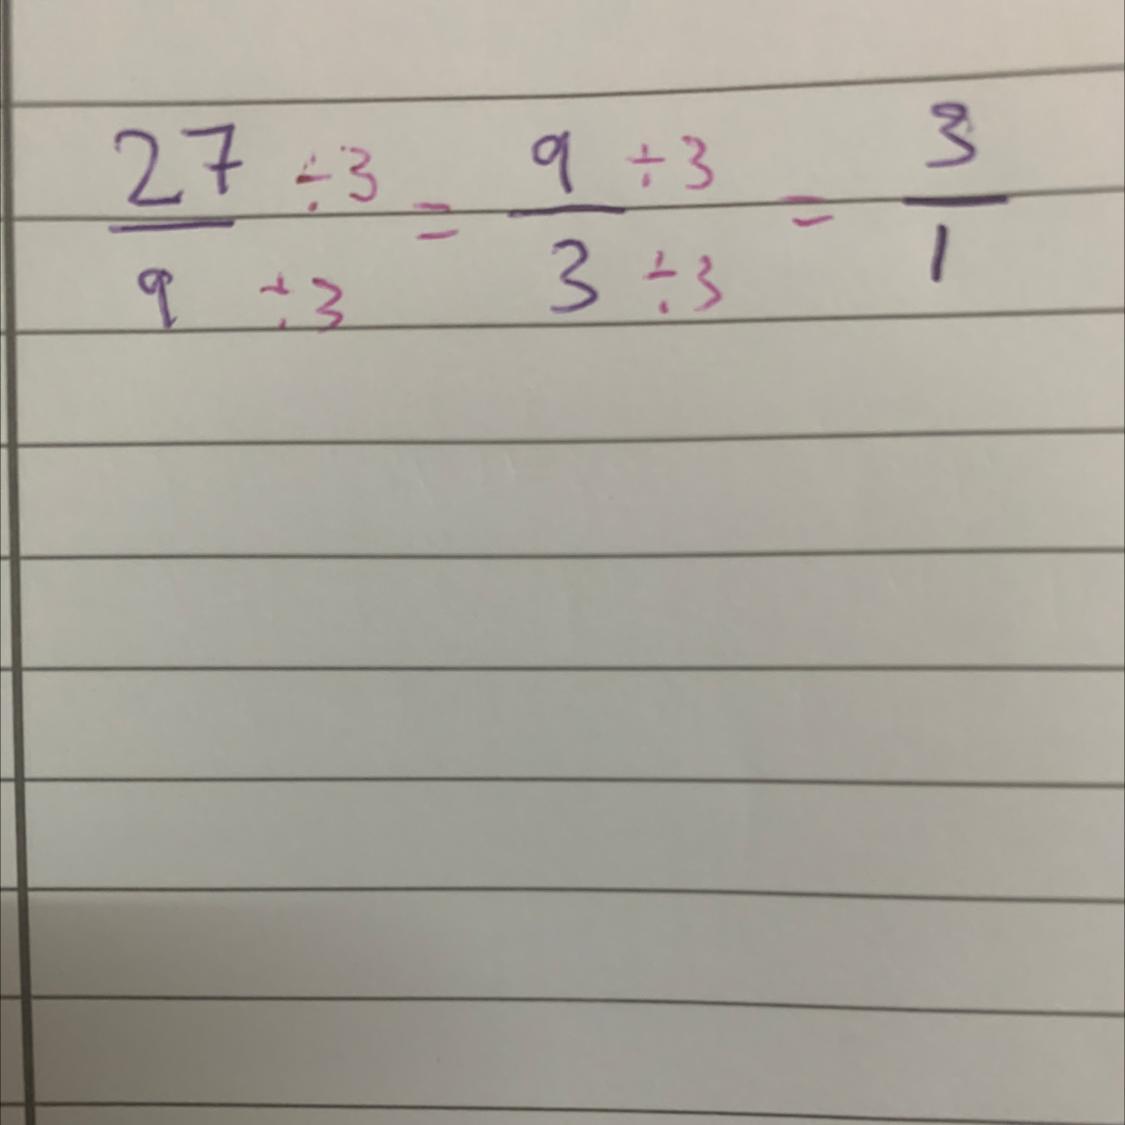 27 ÷3 = 9 ÷3 = 3
9 ÷3 3 ÷3 1